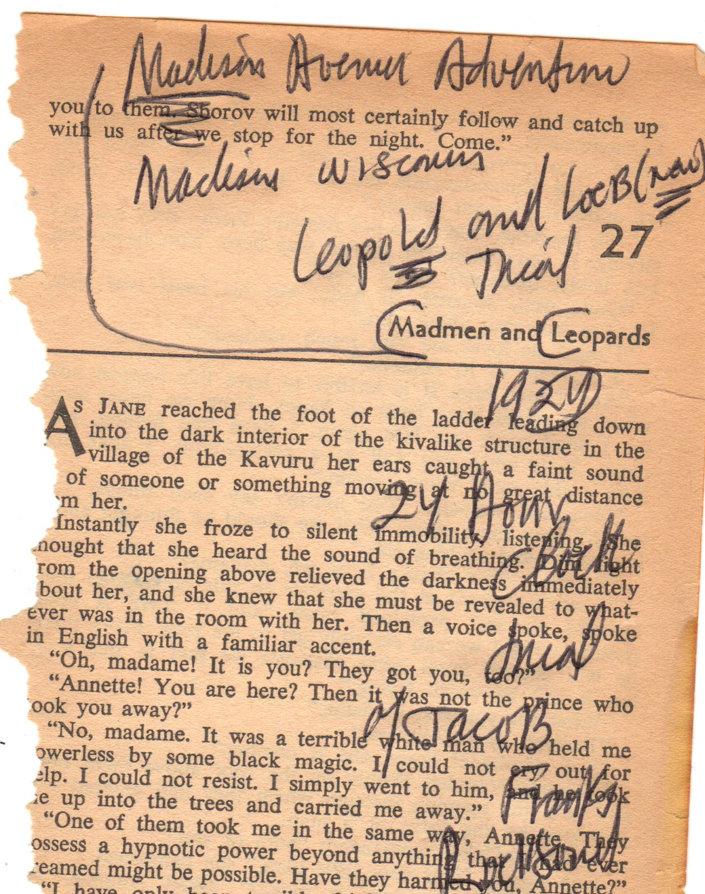 Madison Avenue Adventure
you to them. Shorov will most certainly follow and catch up
with us after we stop for the night. Come.”
Madison Wisconsin
Leopold and LoeB (new)
Trial
27
Madmen and Leopards
1924
AS JANE reached the foot of the ladder leading down
into the dark interior of the kivalike structure in the
village of the Kavuru her ears caught a faint sound
of someone or something moving at no great distance
om her.
24 Hour
Instantly she froze to silent immobility, listening. She
hought that she heard the sound of breathing. Dim light
Clock
rom the opening above relieved the darkness immediately
bout her, and she knew that she must be revealed to what-
ever was in the room with her. Then a voice spoke, spoke
in English with a familiar accent.
Trial
“Oh, madame! It is you? They got you, too?”
“Annette! You are here? Then it was not the prince who
ook you away?”
of JacoB
“No, madame. It was a terrible white man who held me
owerless by some black magic. I could not cry out for
elp. I could not resist. I simply went to him, and he took
e up into the trees and carried me away.”
Franks
“One of them took me in the same way, Annette. They
ossess a hypnotic power beyond anything that I had ever
reamed might be possible. Have they harmed you, Annette?”